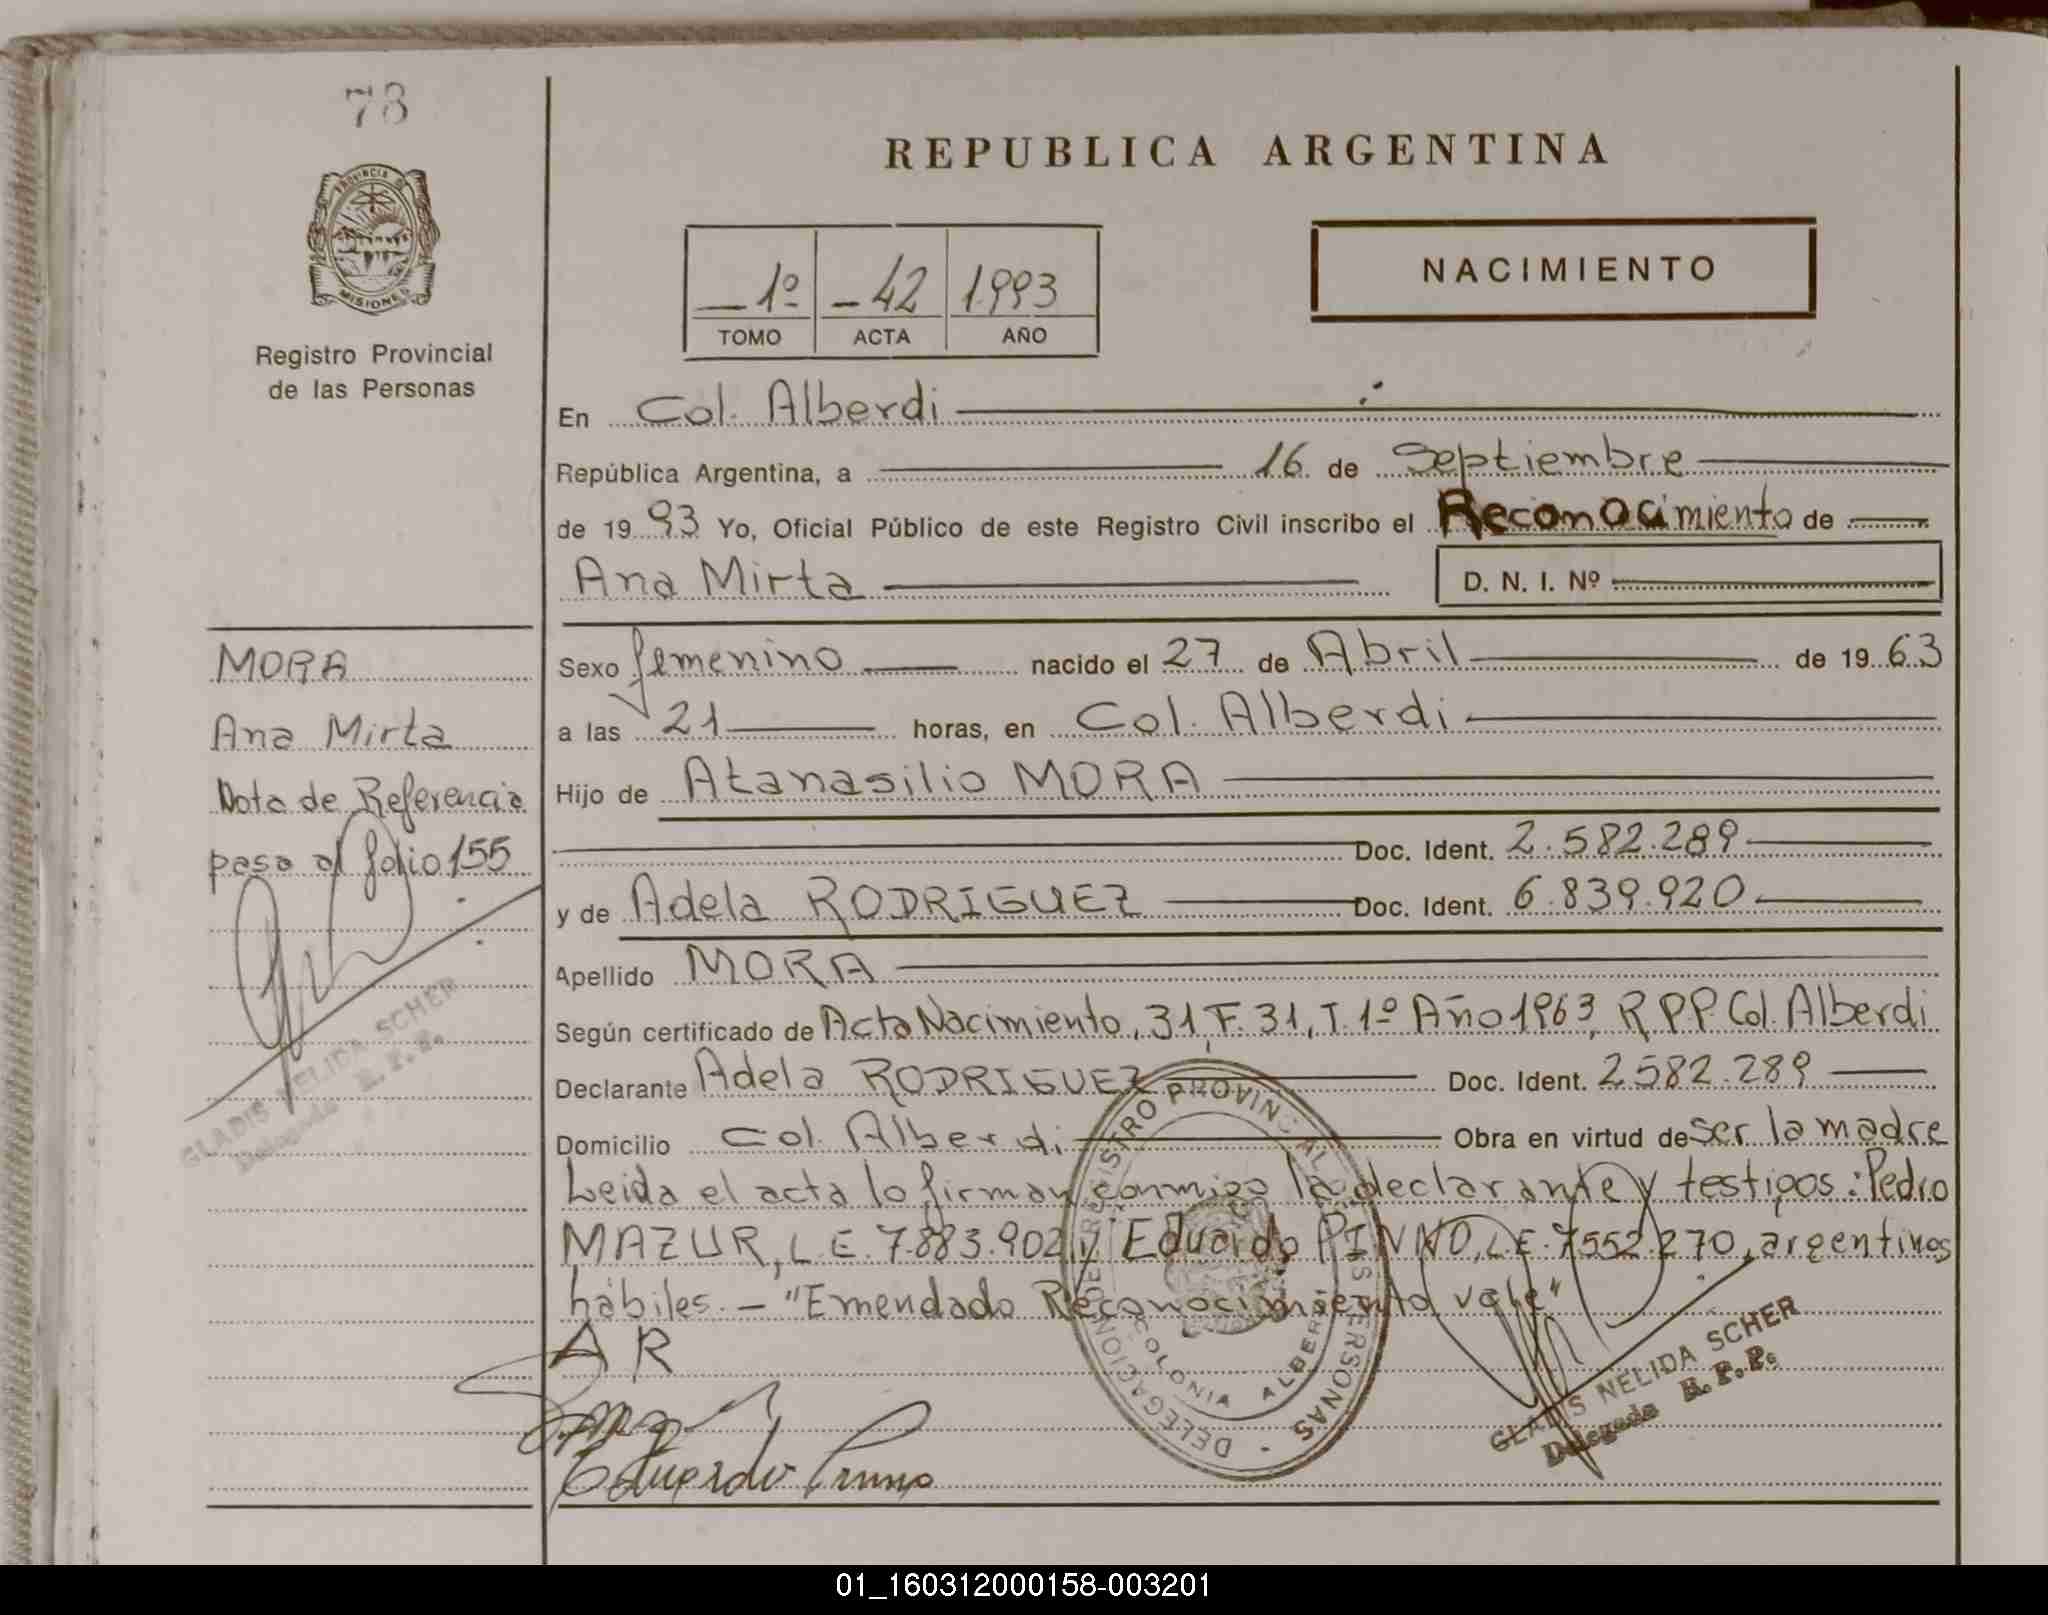 78
PROVINCIA DE
MISIONES
Registro Provincial
de las Personas
MORA
Ana Mirta
Nota de Referencia
pasa al folio 155
GLADIS NELIDA SCHER
Delegada R. P. P.
REPUBLICA ARGENTINA
1º - 42 1993
TOMO ACTA AÑO
NACIMIENTO
En Col. Alberdi
República Argentina, a 16 de Septiembre
de 1993 Yo, Oficial Público de este Registro Civil inscribo el Reconocimiento de
Ana Mirta D. N. I. Nº
Sexo femenino nacido el 27 de Abril de 1963
a las 21 horas, en Col. Alberdi
Hijo de Atanasilio MORA
Doc. Ident. 2.582.289
y de Adela RODRIGUEZ Doc. Ident. 6.839.920
Apellido MORA
Según certificado de Acta Nacimiento, 31, F. 31, T. 1º Año 1963, R P P Col. Alberdi
Declarante Adela RODRIGUEZ Doc. Ident. 2582.289
Domicilio Col. Alberdi Obra en virtud de Ser la madre
Leida el acta lo firman conmigo la declarante y testigos: Pedro
MAZUR, L.E. 7.883.902 y Eduardo PINNO, L.E. 7552.270, argentinos
hábiles. - "Emendado Reconocimiento vale"
A R
Eduardo Pinno
DELEGACION DE REGISTRO PROVINCIAL DE LAS PERSONAS
COLONIA ALBERDI
GLADIS NELIDA SCHER
Delegada R. P. P.
01_160312000158-003201